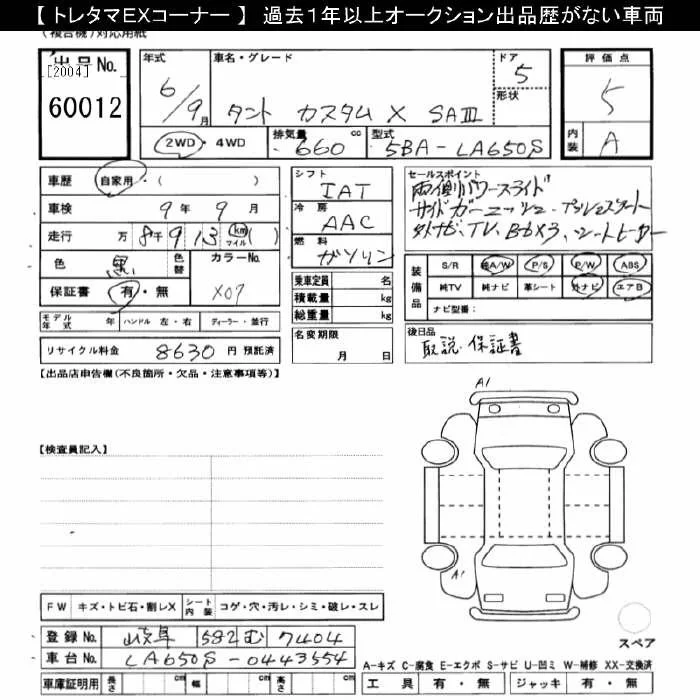 【 トレタマEXコーナー 】 過去1年以上オークション出品歴がない車両
(複合機)対応用紙
出品No. [2004] 60012
年式 6/9月
車名・グレード タント カスタム X SAⅢ
ドア 5 形状
評価点 5
内装 A
2WD ・ 4WD
排気量 660 cc
型式 5BA-LA650S
車歴 自家用・( )
車検 9年 9月
走行 万 8千 913 km マイル ( )
色 黒 色替 カラーNo. X07
保証書 有・無
モデル年式 年 ハンドル 左・右 ディーラー・並行
リサイクル料金 8630 円 預託済
シフト IAT
冷房 AAC
燃料 ガソリン
乗車定員 名
積載量 kg
総重量 kg
名変期限 月 日
セールスポイント
両側パワースライド
外ナビ、TV、Bカメラ、シートヒーター
装備品 S/R 純A/W P/S P/W ABS
純TV 純ナビ 革シート 外ナビ エアB
ナビ型番:
後日品
取説・保証書
【出品店申告欄(不良箇所・欠品・注意事項等)】
A1
【検査員記入】
A1
FW キズ・トビ石・割レX シート内装 コゲ・穴・汚レ・シミ・破レ・スレ
登録No. 岐阜 582 む 7404
車台No. LA650S-0443554
車庫証明用 長さ cm 幅 cm 高さ cm
スペア
A-キズ C-腐食 E-エクボ S-サビ U-凹ミ W-補修 XX-交換済
工具 有・無 ジャッキ 有・無